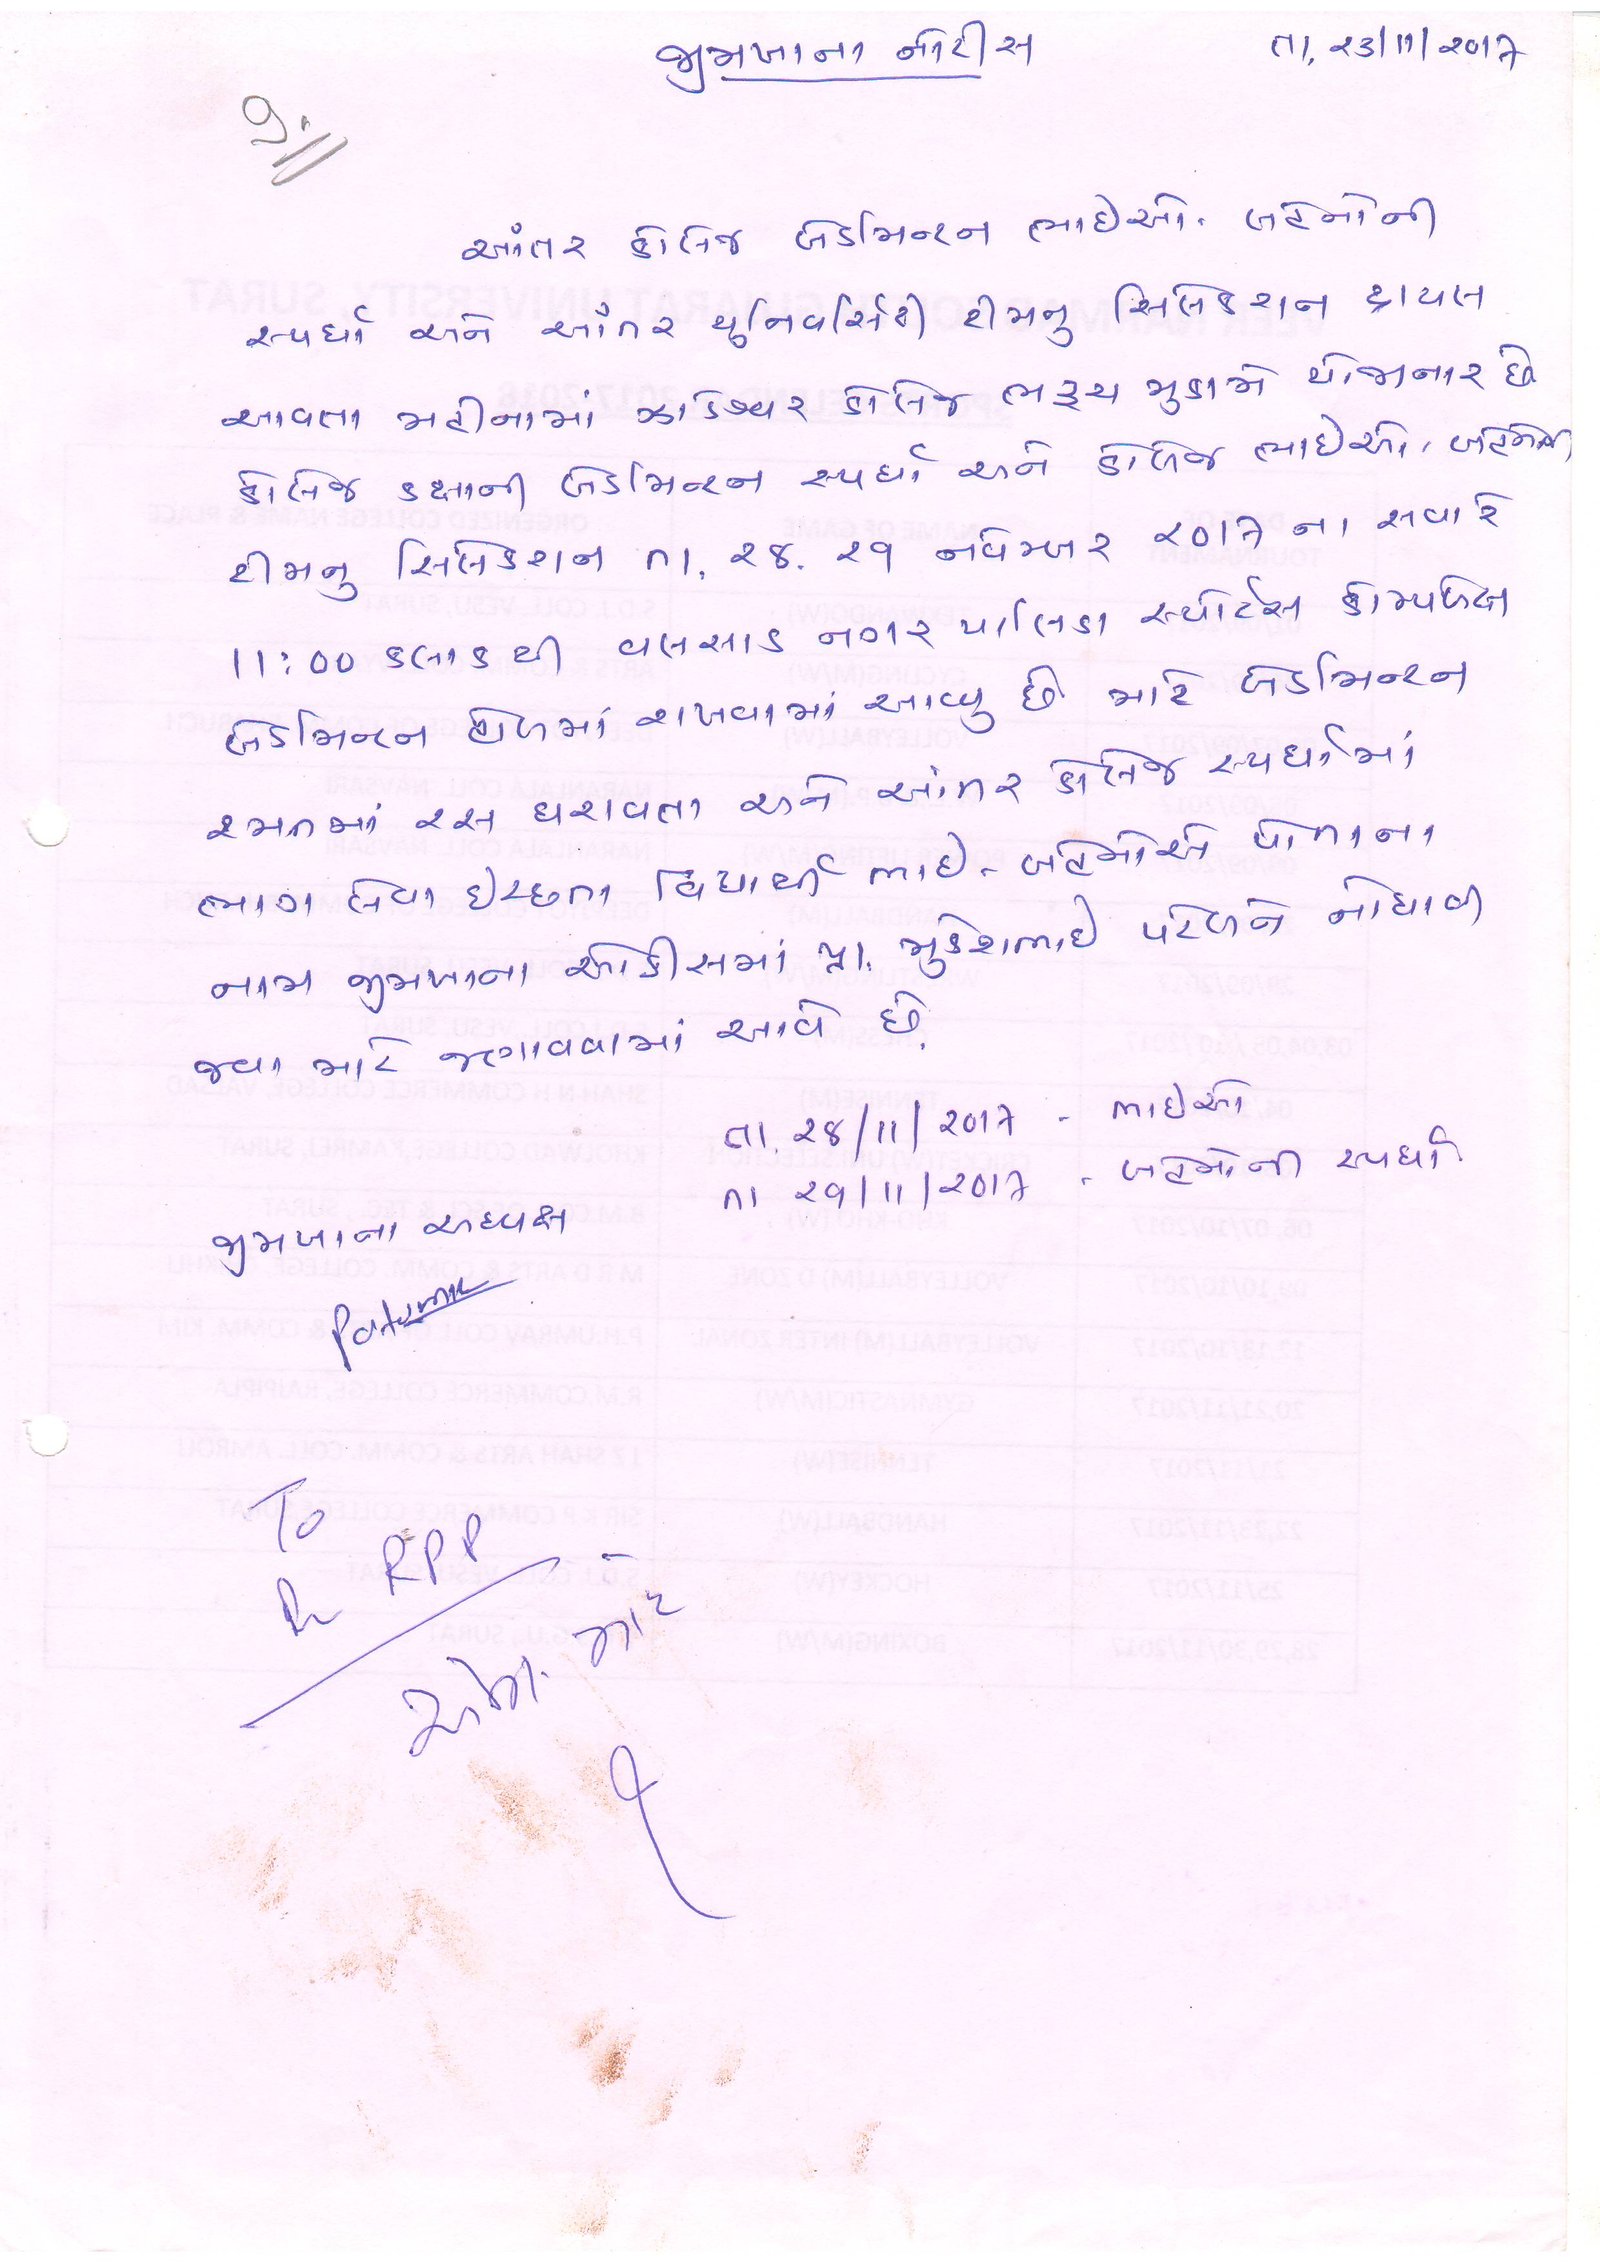 જીમખાના નોટીસ
તા. ૨૩/૧૧/૨૦૧૭
આંતર કોલેજ બેડમિન્ટન ભાઈઓ. બહેનોની
સ્પર્ધા અને આંતર યુનિવર્સિટી ટીમનુ સિલેકશન ટ્રાયલ
આવતા મહીનામાં ઝાડેશ્વર કોલેજ ભરૂચ મુકામે યોજાનાર છે
કોલેજ કક્ષાની બેડમિન્ટન સ્પર્ધા અને કોલેજ ભાઈઓ. બહેનોની
ટીમનુ સિલેકશન તા. ૨૮. ૨૯ નવેમ્બર ૨૦૧૭ ના સવારે
૧૧:૦૦ કલાકથી વલસાડ નગર પાલિકા સ્પોર્ટસ કોમ્પલેક્ષ
બેડમિન્ટન હોલમાં રાખવામાં આવ્યુ છે માટે બેડમિન્ટન
રમતમાં રસ ધરાવતા અને આંતર કોલેજ સ્પર્ધામાં
ભાગ લેવા ઈચ્છતા વિદ્યાર્થી ભાઈ. બહેનોએ પોતાના
નામ જીમખાના ઓફીસમાં પ્રા. મુકેશભાઈ પટેલને નોંધાવી
જવા માટે જણાવવામાં આવે છે.
તા. ૨૮/૧૧/૨૦૧૭ - ભાઈઓ
તા ૨૯/૧૧/૨૦૧૭ - બહેનોની સ્પર્ધા
જીમખાના અધ્યક્ષ
To
RPP